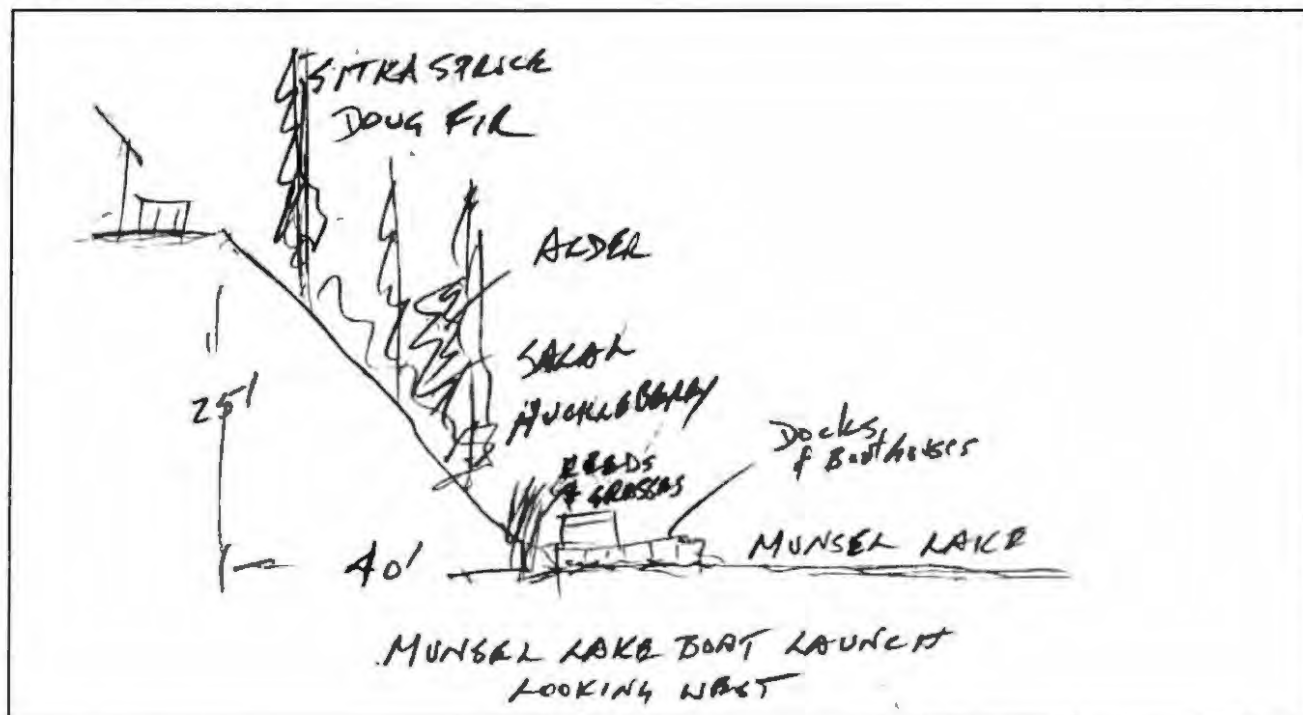 SITKA SPRUCE
DOUG FIR
ALDER
SALAL
HUCKLEBERRY
REEDS
& GRASSES
DOCKS
& BOATHOUSES
25'
40'
MUNSEL LAKE
MUNSEL LAKE BOAT LAUNCH
LOOKING WEST